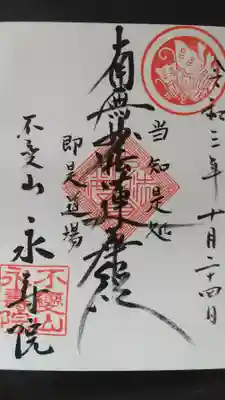 令和三年十月二十四日
当知是処
南無妙法蓮華経
即是道場
不変山 永寿院
不變山
永壽院